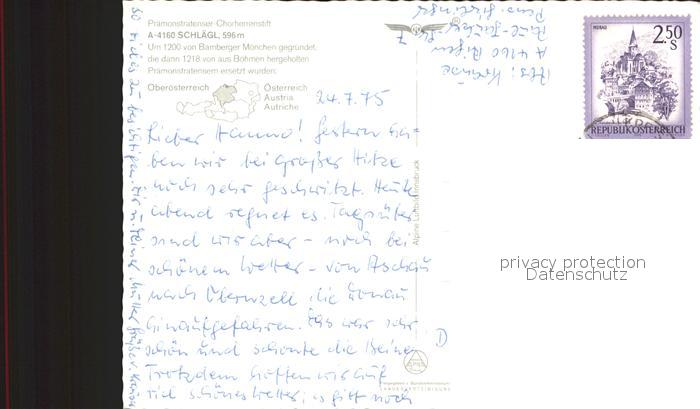 Prämonstratenser-Chorherrenstift
A-4160 SCHLÄGL, 596m
Um 1200 von Bamberger Mönchen gegründet,
die dann 1218 von aus Böhmen hergeholten
Prämonstratensern ersetzt wurden.
Oberösterreich
Österreich
Austria
Autriche
24.7.75
Lieber Hanno! Gestern ha-
ben wir bei großer Hitze
noch sehr geschwitzt. Heute
abend regnet es. Tagsüber
sind wir aber - noch bei
schönem Wetter - von Aschau
nach Obernzell die Donau
hinaufgefahren. Es war sehr
schön und schonte die Beine
Trotzdem hoffen wir auf
viel schönes Wetter; es gibt noch
so vieles zu besichtigen. Dir u. Deiner Mutter Grüße v.
Alpine Luftbild Innsbruck
Abs:
A 4160 Aigen
MURAU
2.50
S
REPUBLIK ÖSTERREICH
privacy protection
Datenschutz